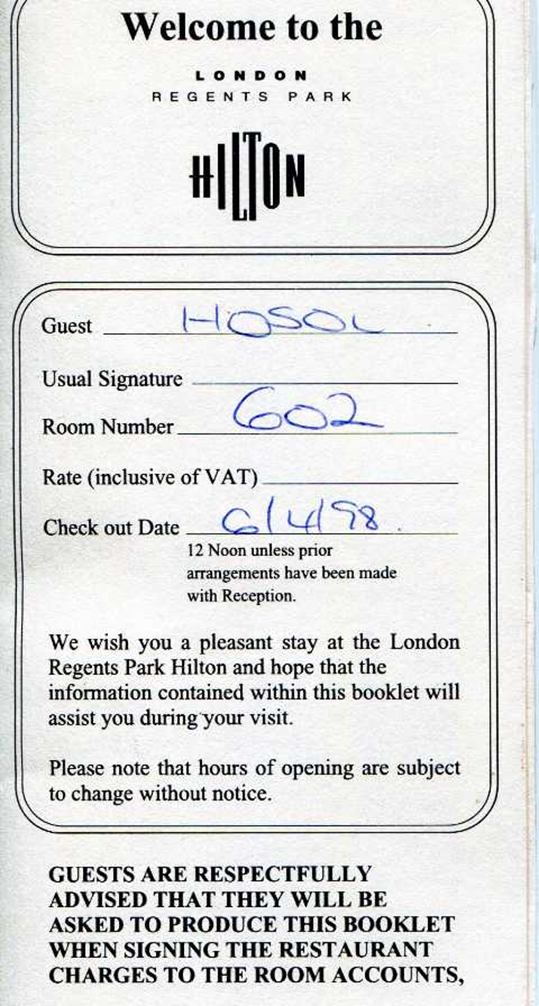 Welcome to the
LONDON
REGENTS PARK
HILTON
Guest HOSOL
Usual Signature
Room Number 602
Rate (inclusive of VAT)
Check out Date 6/4/98.
12 Noon unless prior
arrangements have been made
with Reception.
We wish you a pleasant stay at the London
Regents Park Hilton and hope that the
information contained within this booklet will
assist you during your visit.
Please note that hours of opening are subject
to change without notice.
GUESTS ARE RESPECTFULLY
ADVISED THAT THEY WILL BE
ASKED TO PRODUCE THIS BOOKLET
WHEN SIGNING THE RESTAURANT
CHARGES TO THE ROOM ACCOUNTS,